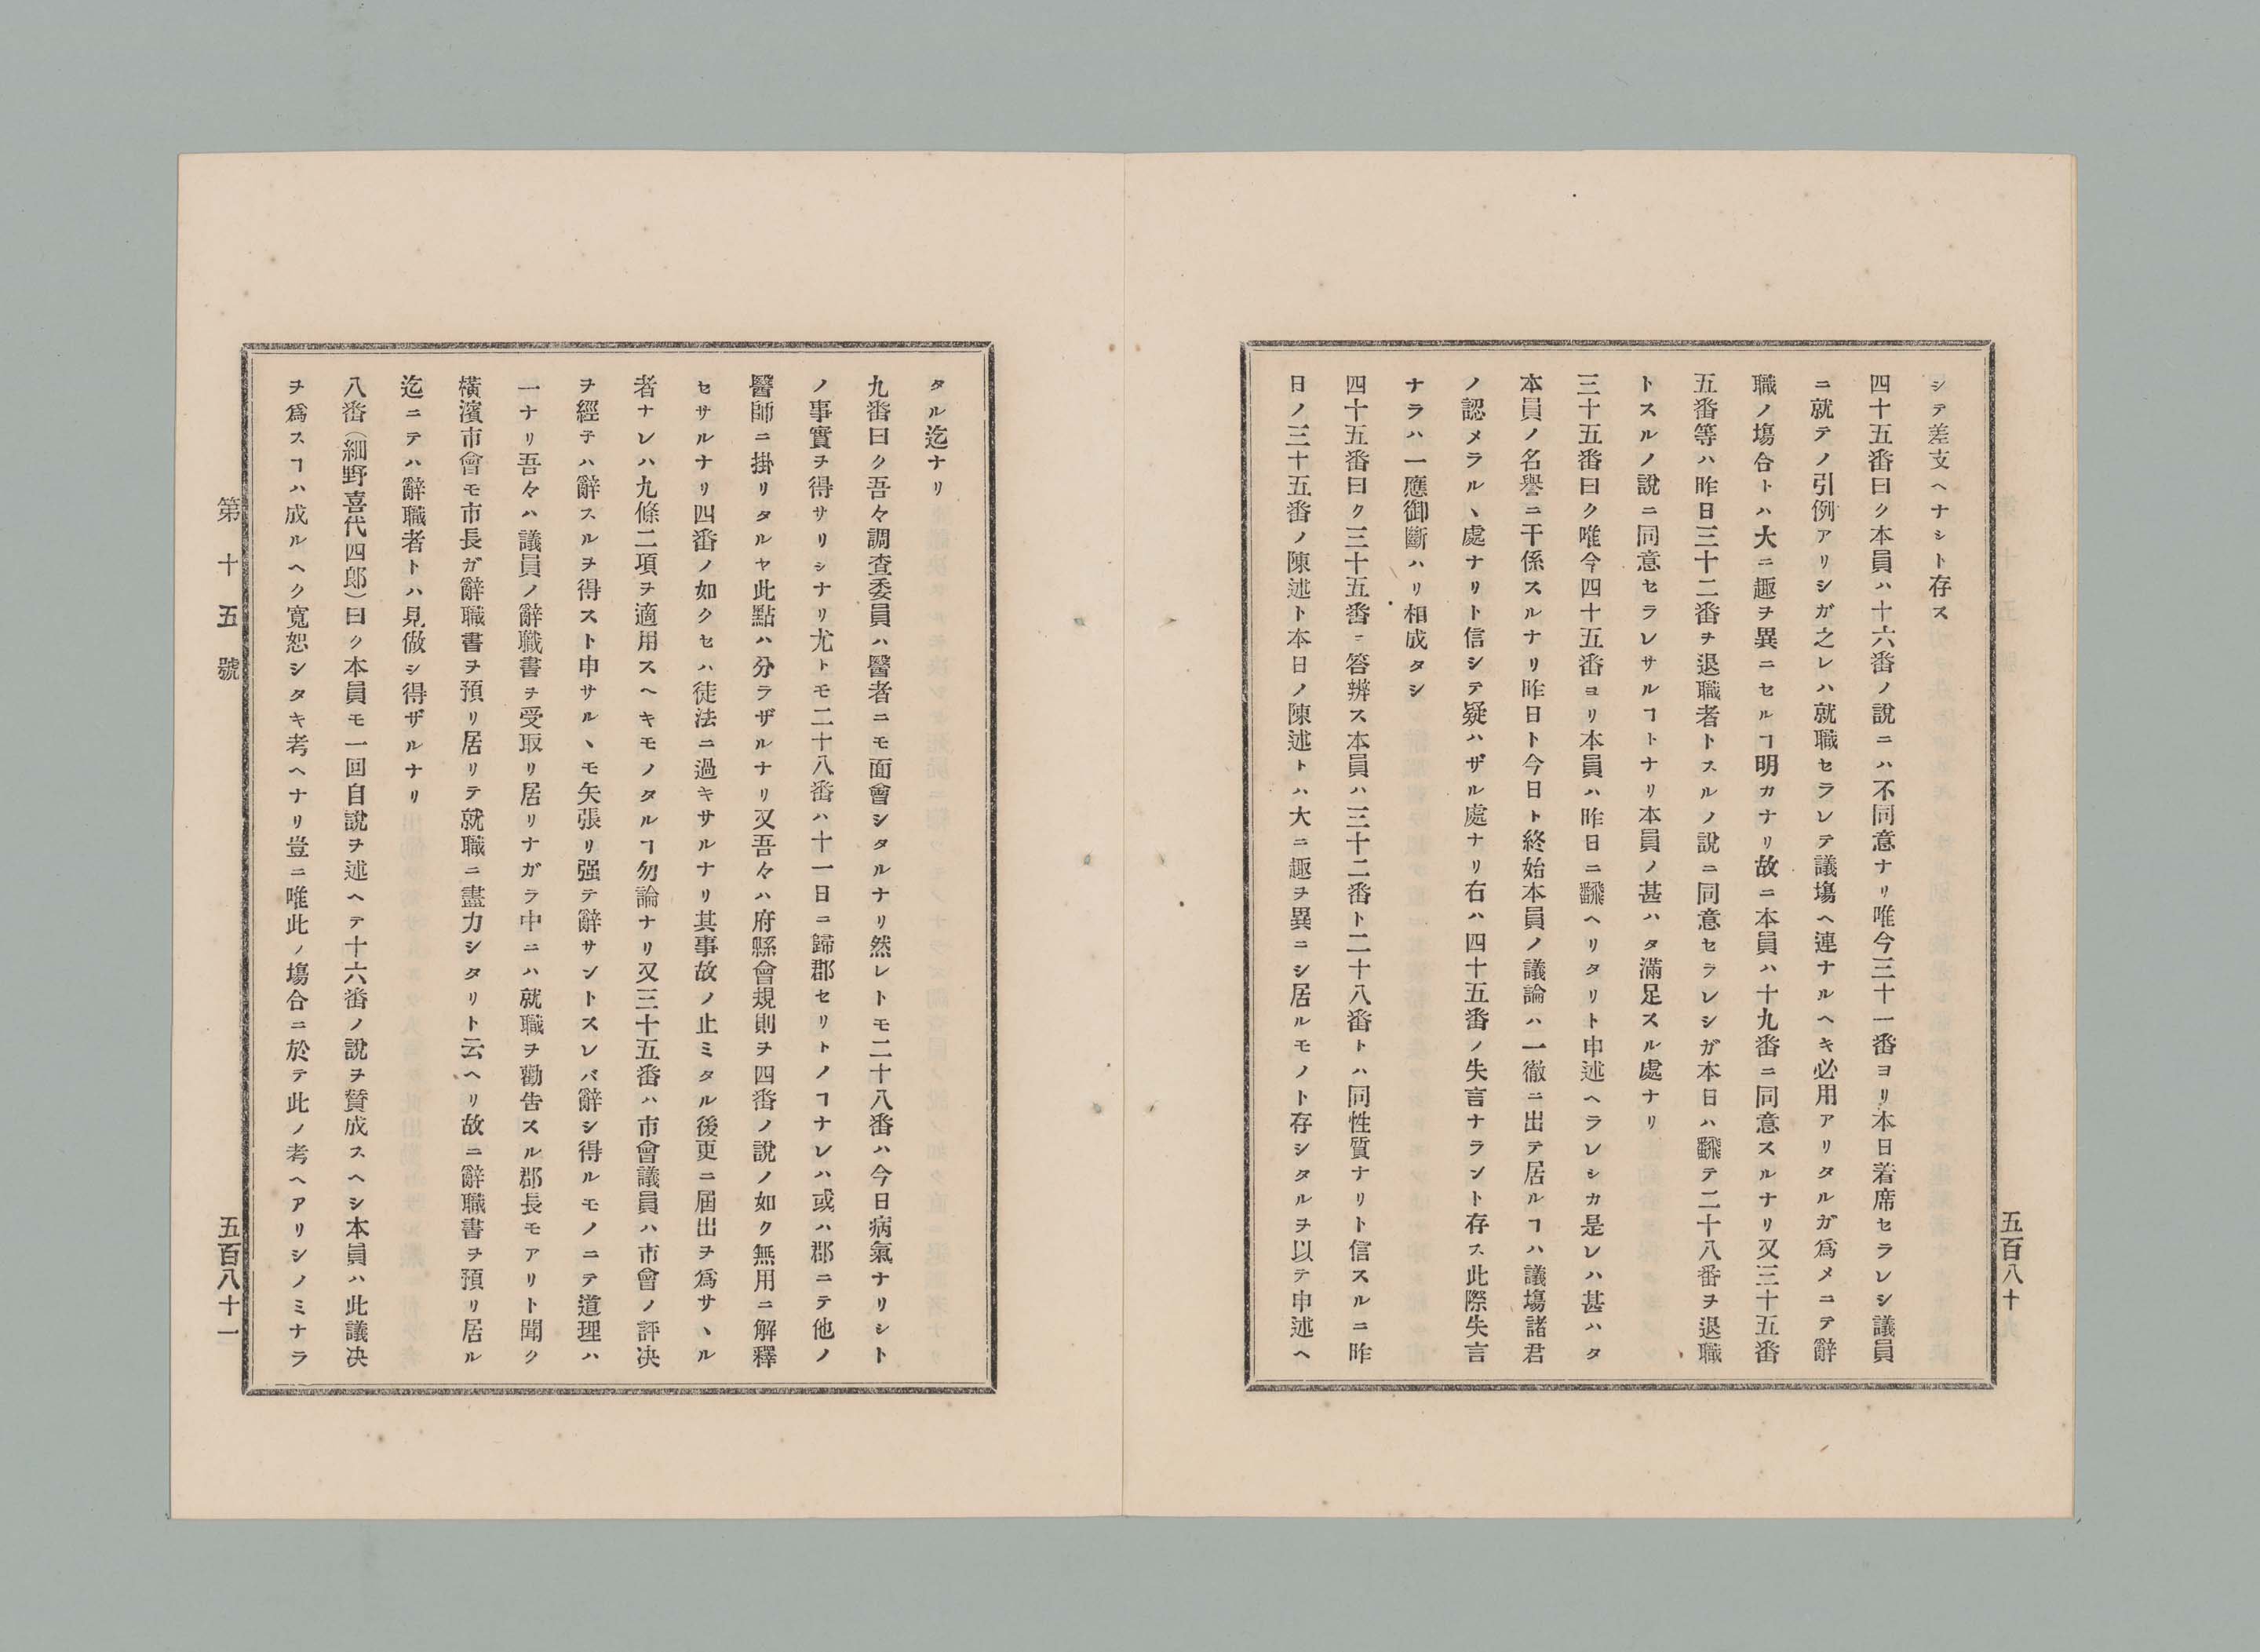 五百八十
シテ差支ヘナシト存ス
四十五番曰ク本員ハ十六番ノ說ニハ不同意ナリ唯今三十一番ヨリ本日着席セラレシ議員
ニ就テノ引例アリシガ之レハ就職セラレテ議塲ヘ連ナルヘキ必用アリタルガ爲メニテ辭
職ノ塲合トハ大ニ趣ヲ異ニセルヿ明カナリ故ニ本員ハ十九番ニ同意スルナリ又三十五番
五番等ハ昨日三十二番ヲ退職者トスルノ說ニ同意セラレシガ本日ハ飜テ二十八番ヲ退職
トスルノ說ニ同意セラレサルヿトナリ本員ノ甚ハタ滿足スル處ナリ
三十五番曰ク唯今四十五番ヨリ本員ハ昨日ニ飜ヘリタリト申述ヘラレシカ是レハ甚ハタ
本員ノ名譽ニ干係スルナリ昨日ト今日ト終始本員ノ議論ハ一徹ニ出テ居ルヿハ議塲諸君
ノ認メラルヽ處ナリト信シテ疑ハザル處ナリ右ハ四十五番ノ失言ナラント存ス此際失言
ナラハ一應御斷ハリ相成タシ
四十五番曰ク三十五番ニ答辨ス本員ハ三十二番ト二十八番トハ同性質ナリト信スルニ昨
日ノ三十五番ノ陳述ト本日ノ陳述トハ大ニ趣ヲ異ニシ居ルモノト存シタルヲ以テ申述ヘ
タル迄ナリ
九番曰ク吾々調査委員ハ醫者ニモ面會シタルナリ然レトモ二十八番ハ今日病氣ナリシト
ノ事實ヲ得サリシナリ尤トモ二十八番ハ十一日ニ歸郡セリトノヿナレハ或ハ郡ニテ他ノ
醫師ニ掛リタルヤ此點ハ分ラザルナリ又吾々ハ府縣會規則ヲ四番ノ說ノ如ク無用ニ解釋
セサルナリ四番ノ如クセハ徒法ニ過キサルナリ其事故ノ止ミタル後更ニ屆出ヲ爲サヽル
者ナレハ九條二項ヲ適用スヘキモノタルヿ勿論ナリ又三十五番ハ市會議員ハ市會ノ評决
ヲ經テハ辭スルヲ得スト申サルヽモ矢張リ强テ辭サントスレバ辭シ得ルモノニテ道理ハ
一ナリ吾々ハ議員ノ辭職書ヲ受取リ居リナガラ中ニハ就職ヲ勸告スル郡長モアリト聞ク
橫濱市會モ市長ガ辭職書ヲ預リ居リテ就職ニ盡力シタリト云ヘリ故ニ辭職書ヲ預リ居ル
迄ニテハ辭職者トハ見做シ得ザルナリ
八番（細野喜代四郎）曰ク本員モ一回自說ヲ述ヘテ十六番ノ說ヲ賛成スヘシ本員ハ此議决
ヲ爲スヿハ成ルヘク寬恕シタキ考ヘナリ豈ニ唯此ノ塲合ニ於テ此ノ考ヘアリシノミナラ
第十五號
五百八十一